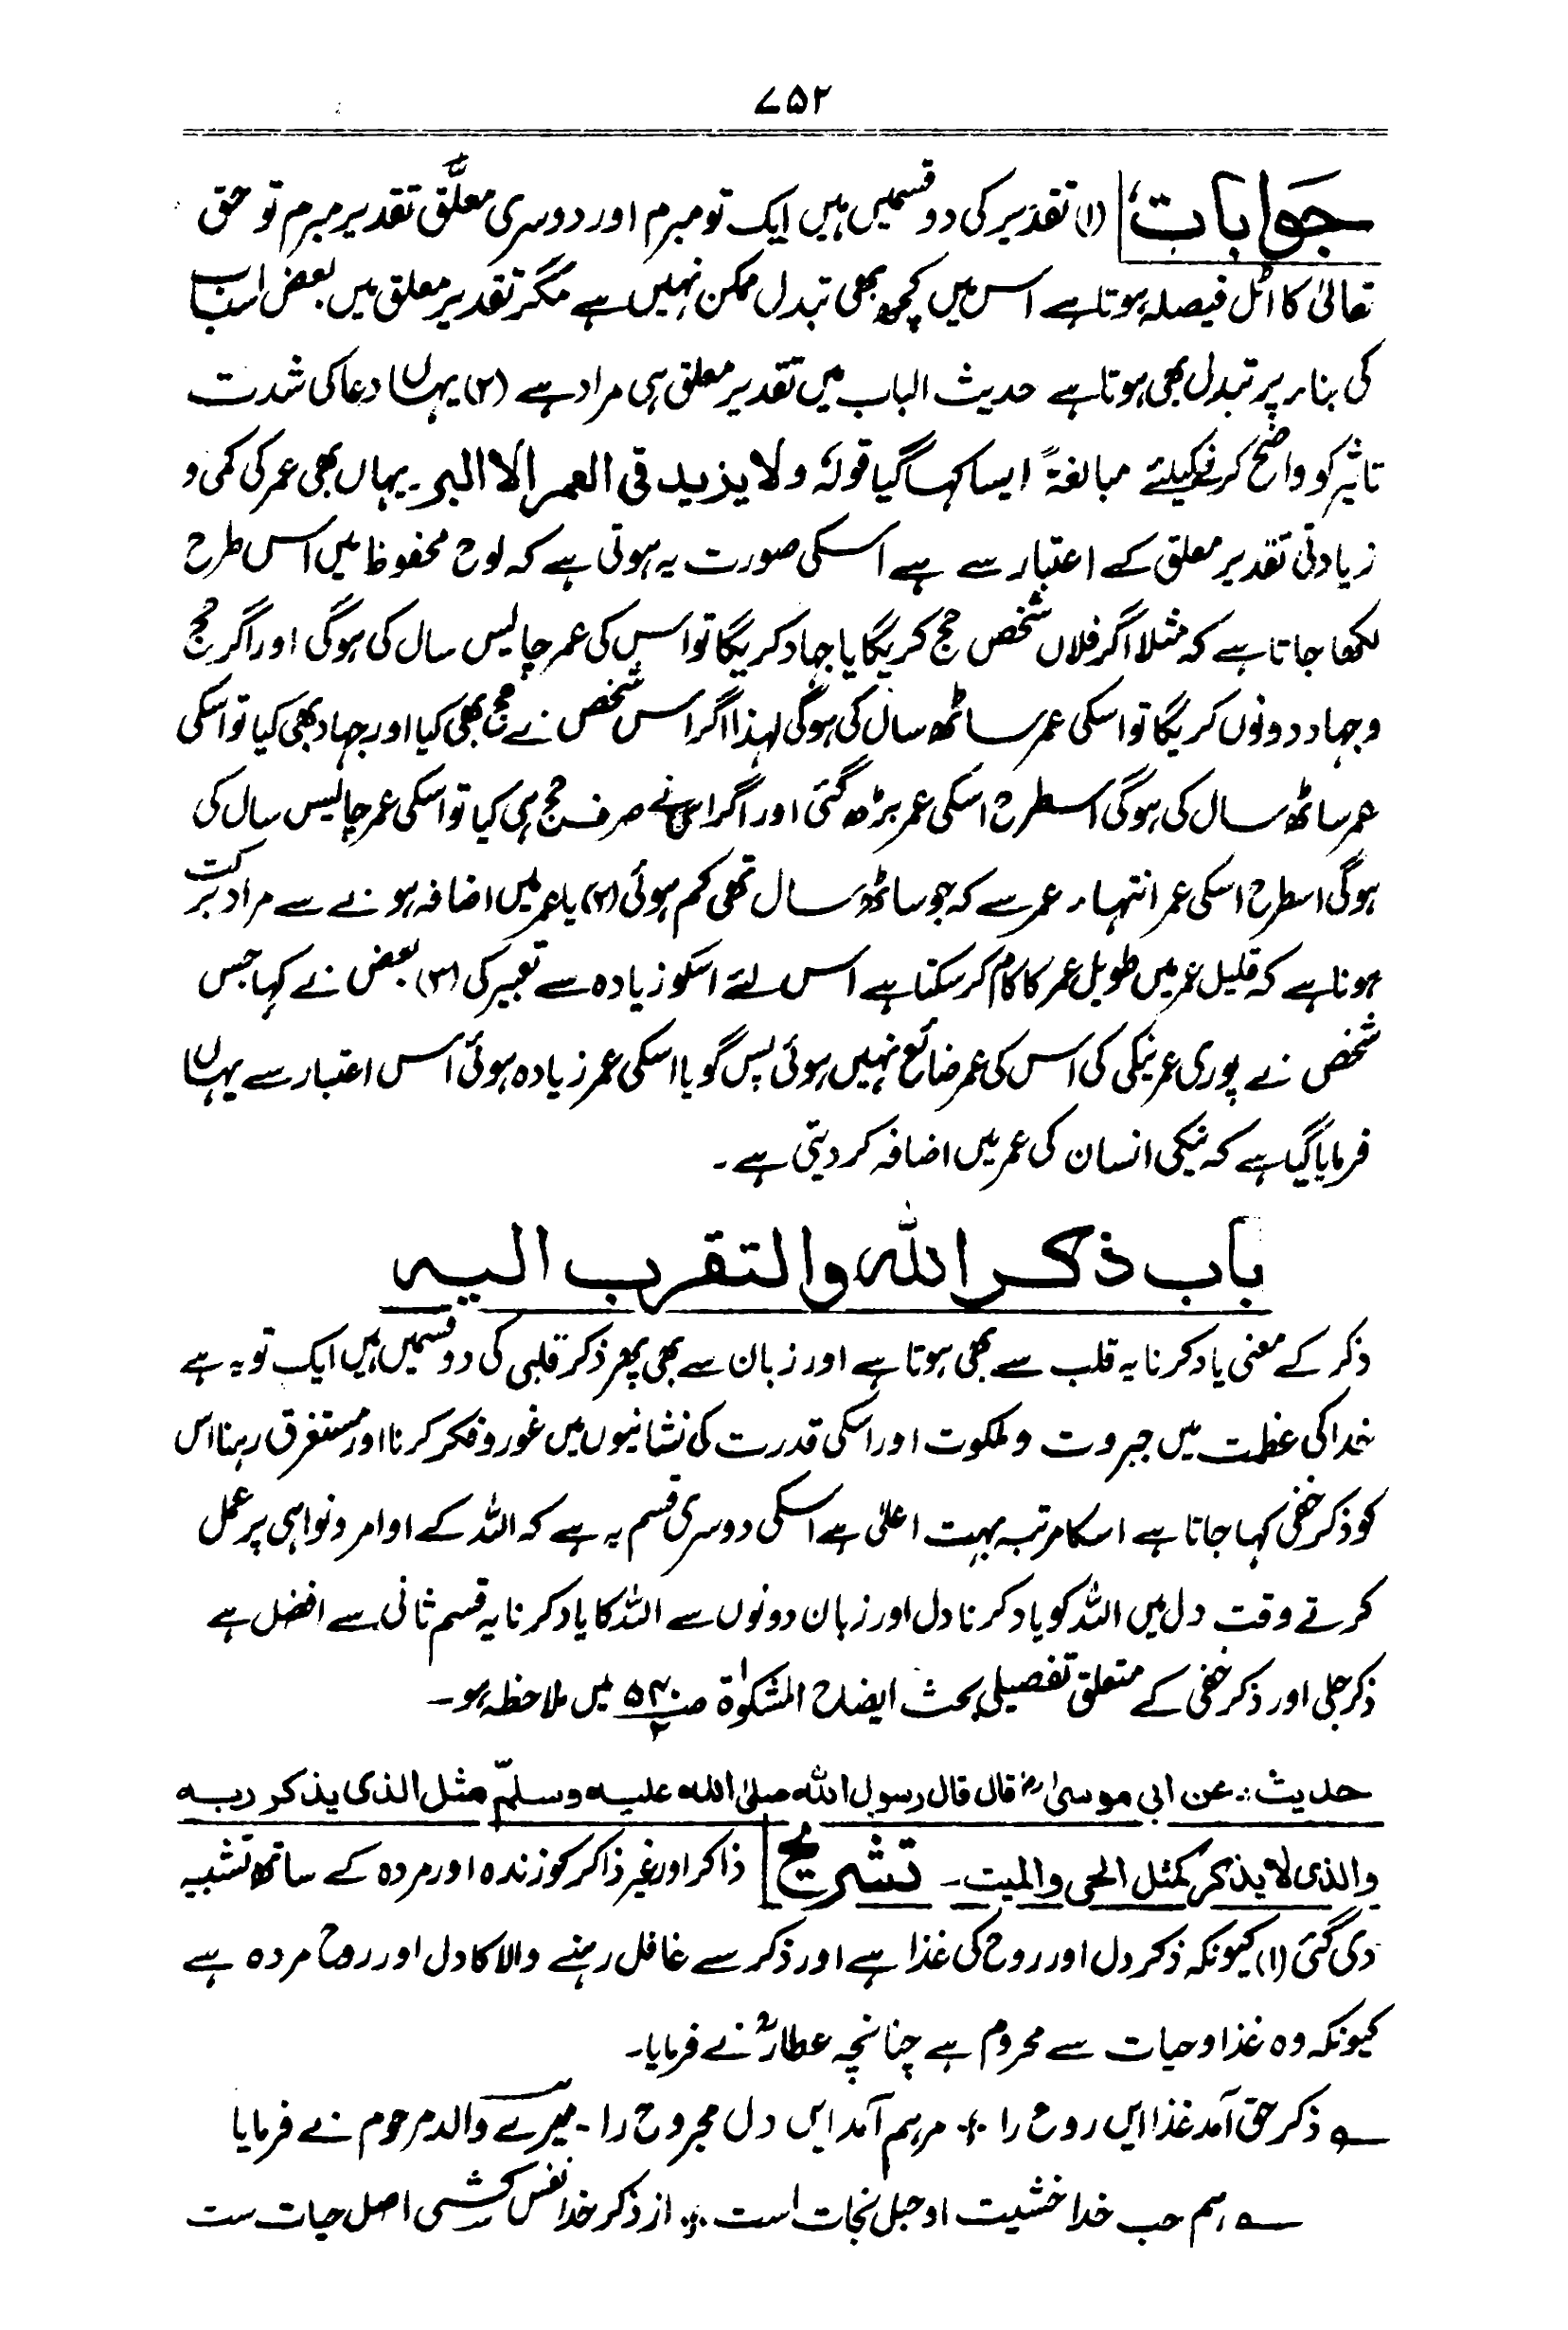 ۷۵۲
جوابات (۱) تقدیر کی دو قسمیں ہیں ایک تو مبرم اور دوسری معلَّق تقدیر مبرم تو حق
تعالیٰ کا اٹل فیصلہ ہوتا ہے اس میں کچھ بھی تبدل ممکن نہیں ہے مگر تقدیر معلق میں بعض اسباب
کی بناء پر تبدل بھی ہوتا ہے حدیث الباب میں تقدیر معلق ہی مراد ہے (۲) یہاں دعا کی شدت
تاثیر کو واضح کرنے کیلئے مبالغۃً ایسا کہا گیا قولہٗ ولا یزید فی العمر الا البر۔ یہاں بھی عمر کی کمی و
زیادتی تقدیر معلق کے اعتبار سے ہے اسکی صورت یہ ہوتی ہے کہ لوح محفوظ میں اس طرح
لکھا جاتا ہے کہ مثلا اگر فلاں شخص حج کریگا یا جہاد کریگا تو اس کی عمر چالیس سال کی ہوگی اور اگر حج
و جہاد دونوں کریگا تو اسکی عمر ساٹھ سال کی ہوگی لہذا اگر اس شخص نے حج بھی کیا اور جہاد بھی کیا تو اسکی
عمر ساٹھ سال کی ہوگی اسطرح اسکی عمر بڑھ گئی اور اگر اس نے صرف حج ہی کیا تو اسکی عمر چالیس سال کی
ہوگی اسطرح اسکی عمر انتہاء عمر سے کہ جو ساٹھ سال تھی کم ہوئی (۲) یا عمر میں اضافہ ہونے سے مراد برکت
ہونا ہے کہ قلیل عمر میں طویل عمر کا کام کر سکتا ہے اس لئے اسکو زیادہ سے تعبیر کی (۳) بعض نے کہا جس
شخص نے پوری عمر نیکی کی اس کی عمر ضائع نہیں ہوئی پس گویا اسکی عمر زیادہ ہوئی اس اعتبار سے یہاں
فرمایا گیا ہے کہ نیکی انسان کی عمر میں اضافہ کر دیتی ہے ۔
باب ذکر اللہ والتقرب الیہ
ذکر کے معنی یاد کرنا یہ قلب سے بھی ہوتا ہے اور زبان سے بھی پھر ذکر قلبی کی دو قسمیں ہیں ایک تو یہ ہے
خدا کی عظمت میں جبروت و ملکوت اور اسکی قدرت کی نشانیوں میں غور و فکر کرنا اور مستغرق رہنا اس
کو ذکر خفی کہا جاتا ہے اسکا مرتبہ بہت اعلیٰ ہے اسکی دوسری قسم یہ ہے کہ اللہ کے اوامر و نواہی پر عمل
کرتے وقت دل میں اللہ کو یاد کرنا دل اور زبان دونوں سے اللہ کا یاد کرنا یہ قسم ثانی سے افضل ہے
ذکر جلی اور ذکر خفی کے متعلق تفصیلی بحث ایضاح المشکوٰۃ صـ ۵۴۰/۲ میں ملاحظہ ہو۔
حدیث :۔ عن ابی موسیٰؓ قال قال رسول اللہ صلی اللہ علیہ وسلّم مثل الذی یذکر ربہ
والذی لا یذکر کمثل الحی والمیت ۔ تشریح ذاکر اور غیر ذاکر کو زندہ اور مردہ کے ساتھ تشبیہ
دی گئی (۱) کیونکہ ذکر دل اور روح کی غذا ہے اور ذکر سے غافل رہنے والا کا دل اور روح مردہ ہے
کیونکہ وہ غذا و حیات سے محروم ہے چنانچہ عطارؒ نے فرمایا۔
؎ ذکر حق آمد غذا ایں روح را ÷ مرہم آمد ایں دل مجروح را ۔ میرے والد مرحوم نے فرمایا
؎ ہم حب خدا خشیت او حبل نجات است ÷ از ذکر خدا نفس کشی اصل حیات ست